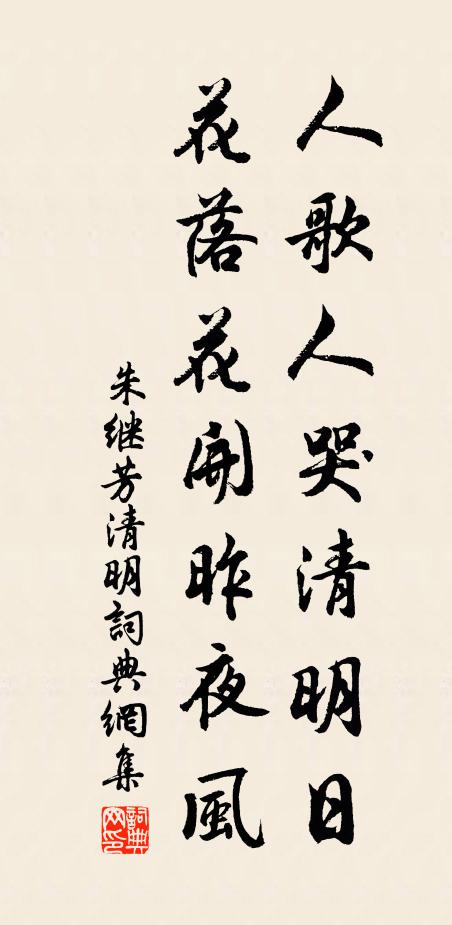 人歌人哭清明日
花落花開昨夜風
朱继芳清明詞典網集
詞典网印